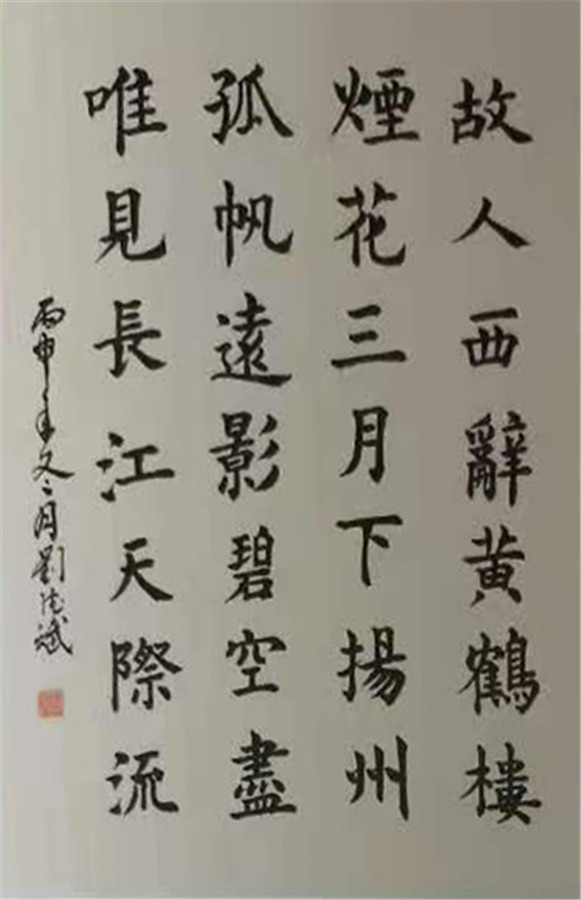 故人西辭黃鶴樓
煙花三月下揚州
孤帆遠影碧空盡
唯見長江天際流
丙申年冬月劉德斌